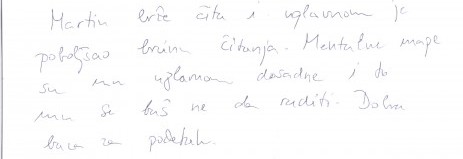 Martin brže čita i uglavnom je
poboljšao brzinu čitanja. Mentalne mape
su mu uglavnom dosadne i to
mu se baš ne da raditi. Dobra
baza za početak.